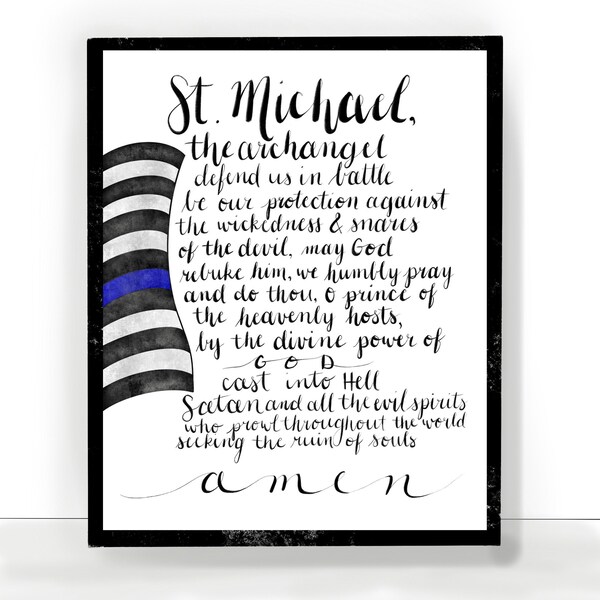 St. Michael,
the archangel
defend us in battle
be our protection against
the wickedness & snares
of the devil, may God
rebuke him, we humbly pray
and do thou, O prince of
the heavenly hosts,
by the divine power of
GOD
cast into Hell
Satan and all the evil spirits
who prowl throughout the world
seeking the ruin of souls
amen